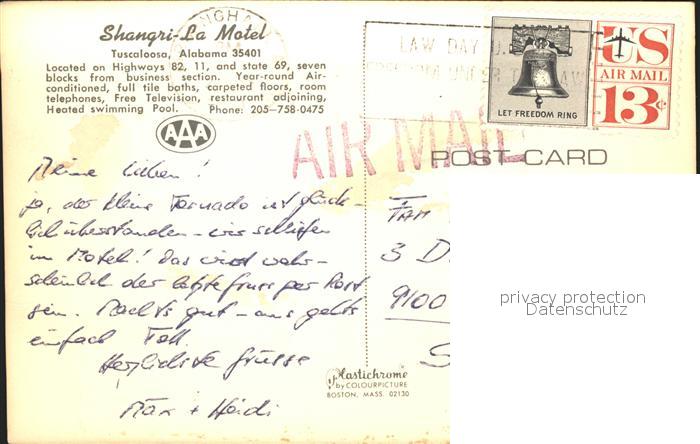 Shangri-La Motel
Tuscaloosa, Alabama 35401
Located on Highways 82, 11, and state 69, seven
blocks from business section. Year-round Air-
conditioned, full tile baths, carpeted floors, room
telephones, Free Television, restaurant adjoining,
Heated swimming Pool. Phone: 205-758-0475
AAA
LAW DAY U.S.
LET FREEDOM RING
US
AIR MAIL
13c
AIR MAIL
POST CARD
Meine Lieben!
ja, der kleine Tornado ist glück-
lich überstanden - wir schliefen
im Motel! Das wird wahr-
scheinlich der letzte Gruss per Post
sein. Machts gut - uns gehts
einfach toll.
Herzlichste Grüsse
Max + Heidi
Fam
3 D
9100
S
privacy protection
Datenschutz
Plastichrome
by COLOURPICTURE
BOSTON, MASS. 02130